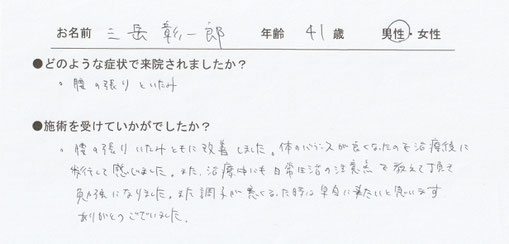 お名前 三岳彰一郎 年齢 41歳 男性・女性
●どのような症状で来院されましたか？
。腰の張りといたみ
●施術を受けていかがでしたか？
。腰の張りいたみともに改善しました。体のバランスが良くなったのを治療後に
歩行して感じました。また、治療中にも日常生活の注意点を教えて頂き
勉強になりました。また調子が悪くなった時は早目に来たいと思います
ありがとうございました。